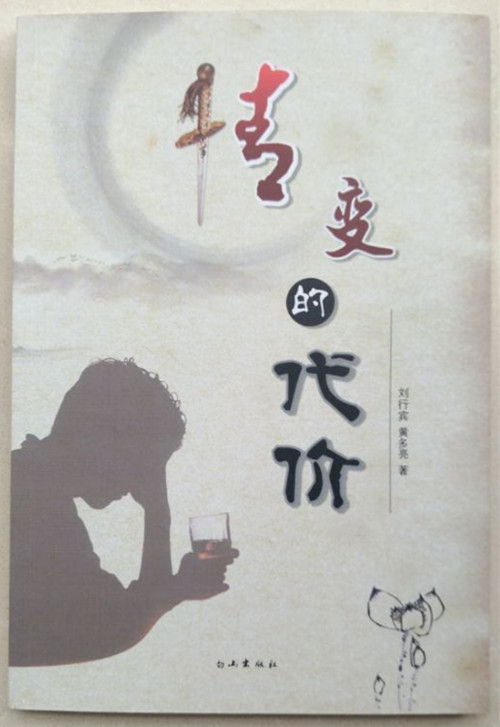 情变的代价
刘行宾 黄多亮 著
白山出版社